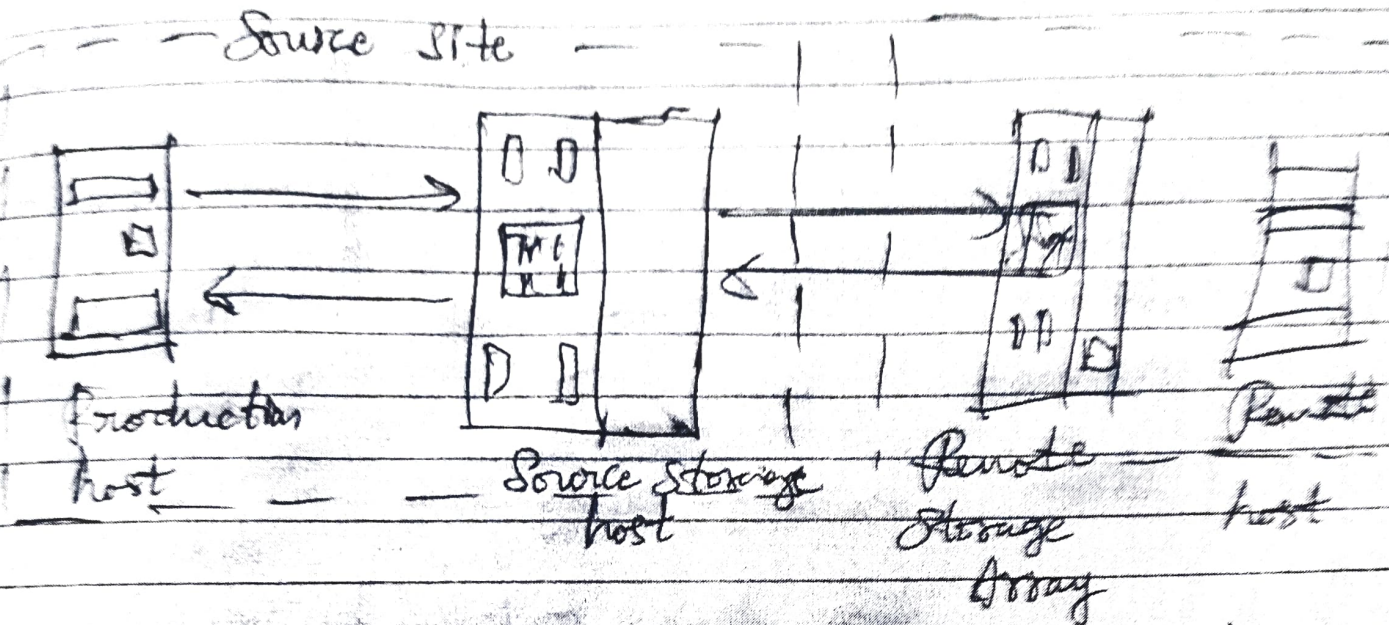 Source site
Production
host
Source Storage
host
Remote
Storage
Array
Remote
host